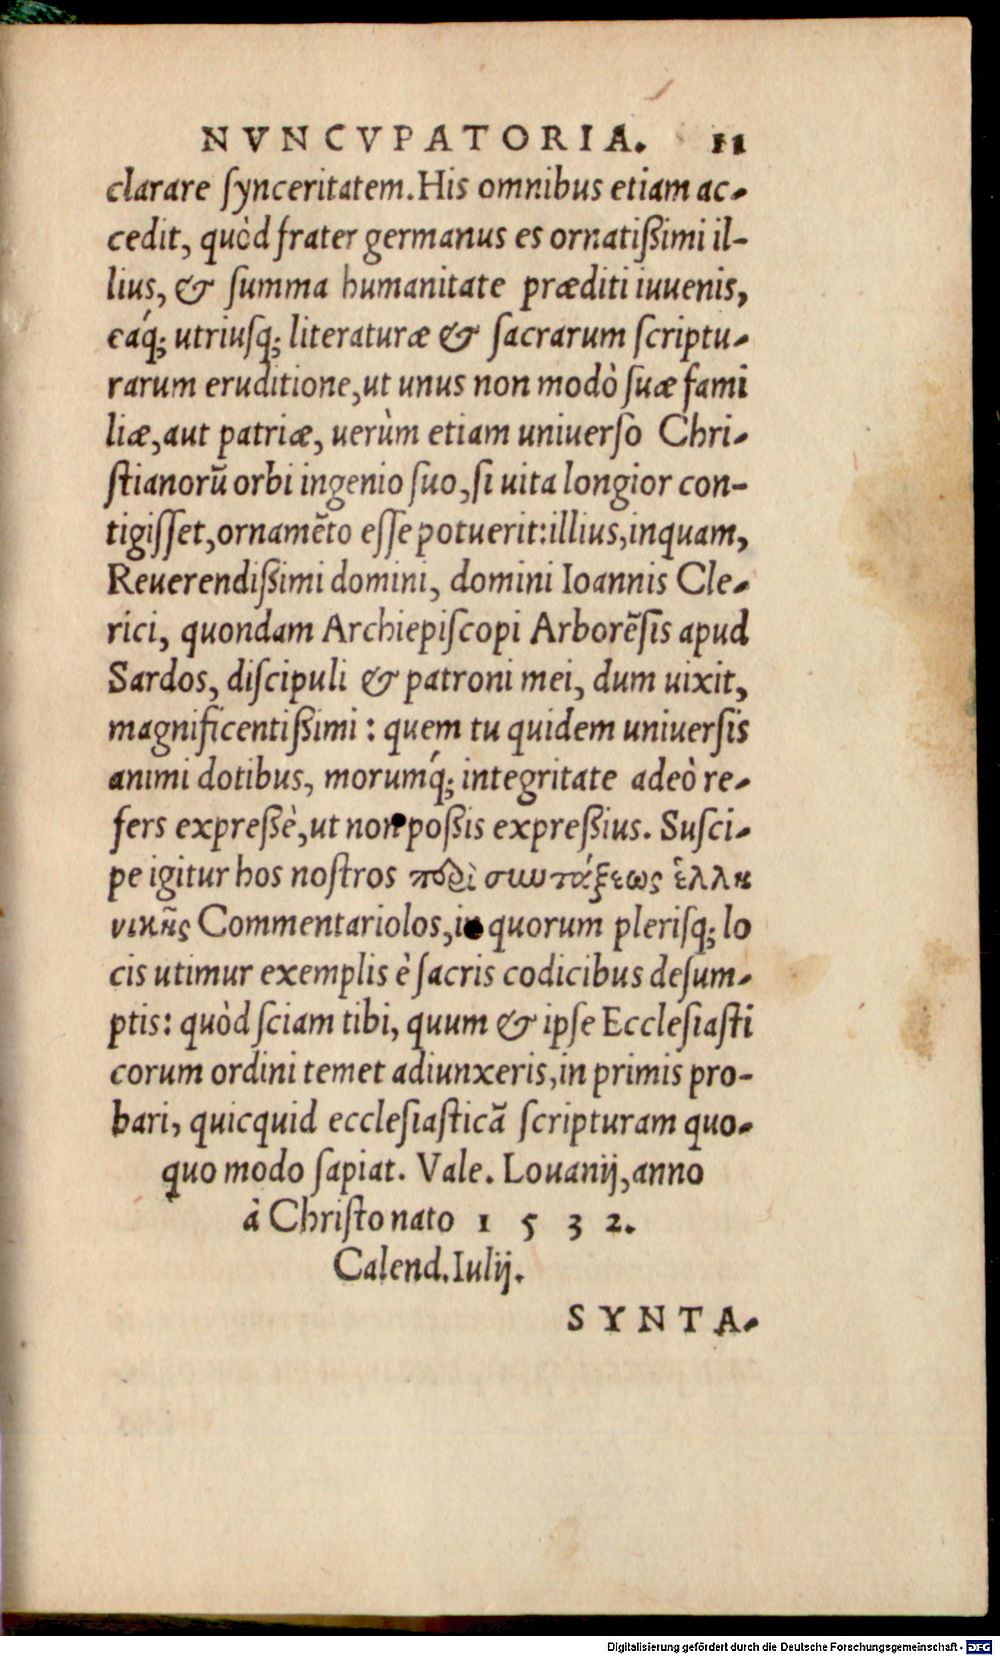 NVNCVPATORIA. 11
clarare ſynceritatem. His omnibus etiam ac-
cedit, quòd frater germanus es ornatißimi il-
lius, & ſumma humanitate præditi iuuenis,
eáq; utriuſq; literaturæ & ſacrarum ſcriptu-
rarum eruditione, ut unus non modò ſuæ fami
liæ, aut patriæ, uerùm etiam uniuerſo Chri-
ſtianorũ orbi ingenio ſuo, ſi uita longior con-
tigiſſet, ornamẽto eſſe potuerit: illius, inquam,
Reuerendißimi domini, domini Ioannis Cle-
rici, quondam Archiepiſcopi Arborẽſis apud
Sardos, diſcipuli & patroni mei, dum uixit,
magnificentißimi: quem tu quidem uniuerſis
animi dotibus, morumq́; integritate adeò re-
fers expreßè, ut non poßis expreßius. Suſci-
pe igitur hos noſtros περὶ συντάξεως ἑλλη
νικῆς Commentariolos, in quorum pleriſq; lo
cis utimur exemplis è ſacris codicibus deſum-
ptis: quòd ſciam tibi, quum & ipſe Eccleſiaſti
corum ordini temet adiunxeris, in primis pro-
bari, quicquid eccleſiaſticã ſcripturam quo-
quo modo ſapiat. Vale. Louanij, anno
à Chriſto nato 1 5 3 2.
Calend. Iulij.
SYNTA-
Digitalisierung gefördert durch die Deutsche Forschungsgemeinschaft - DFG